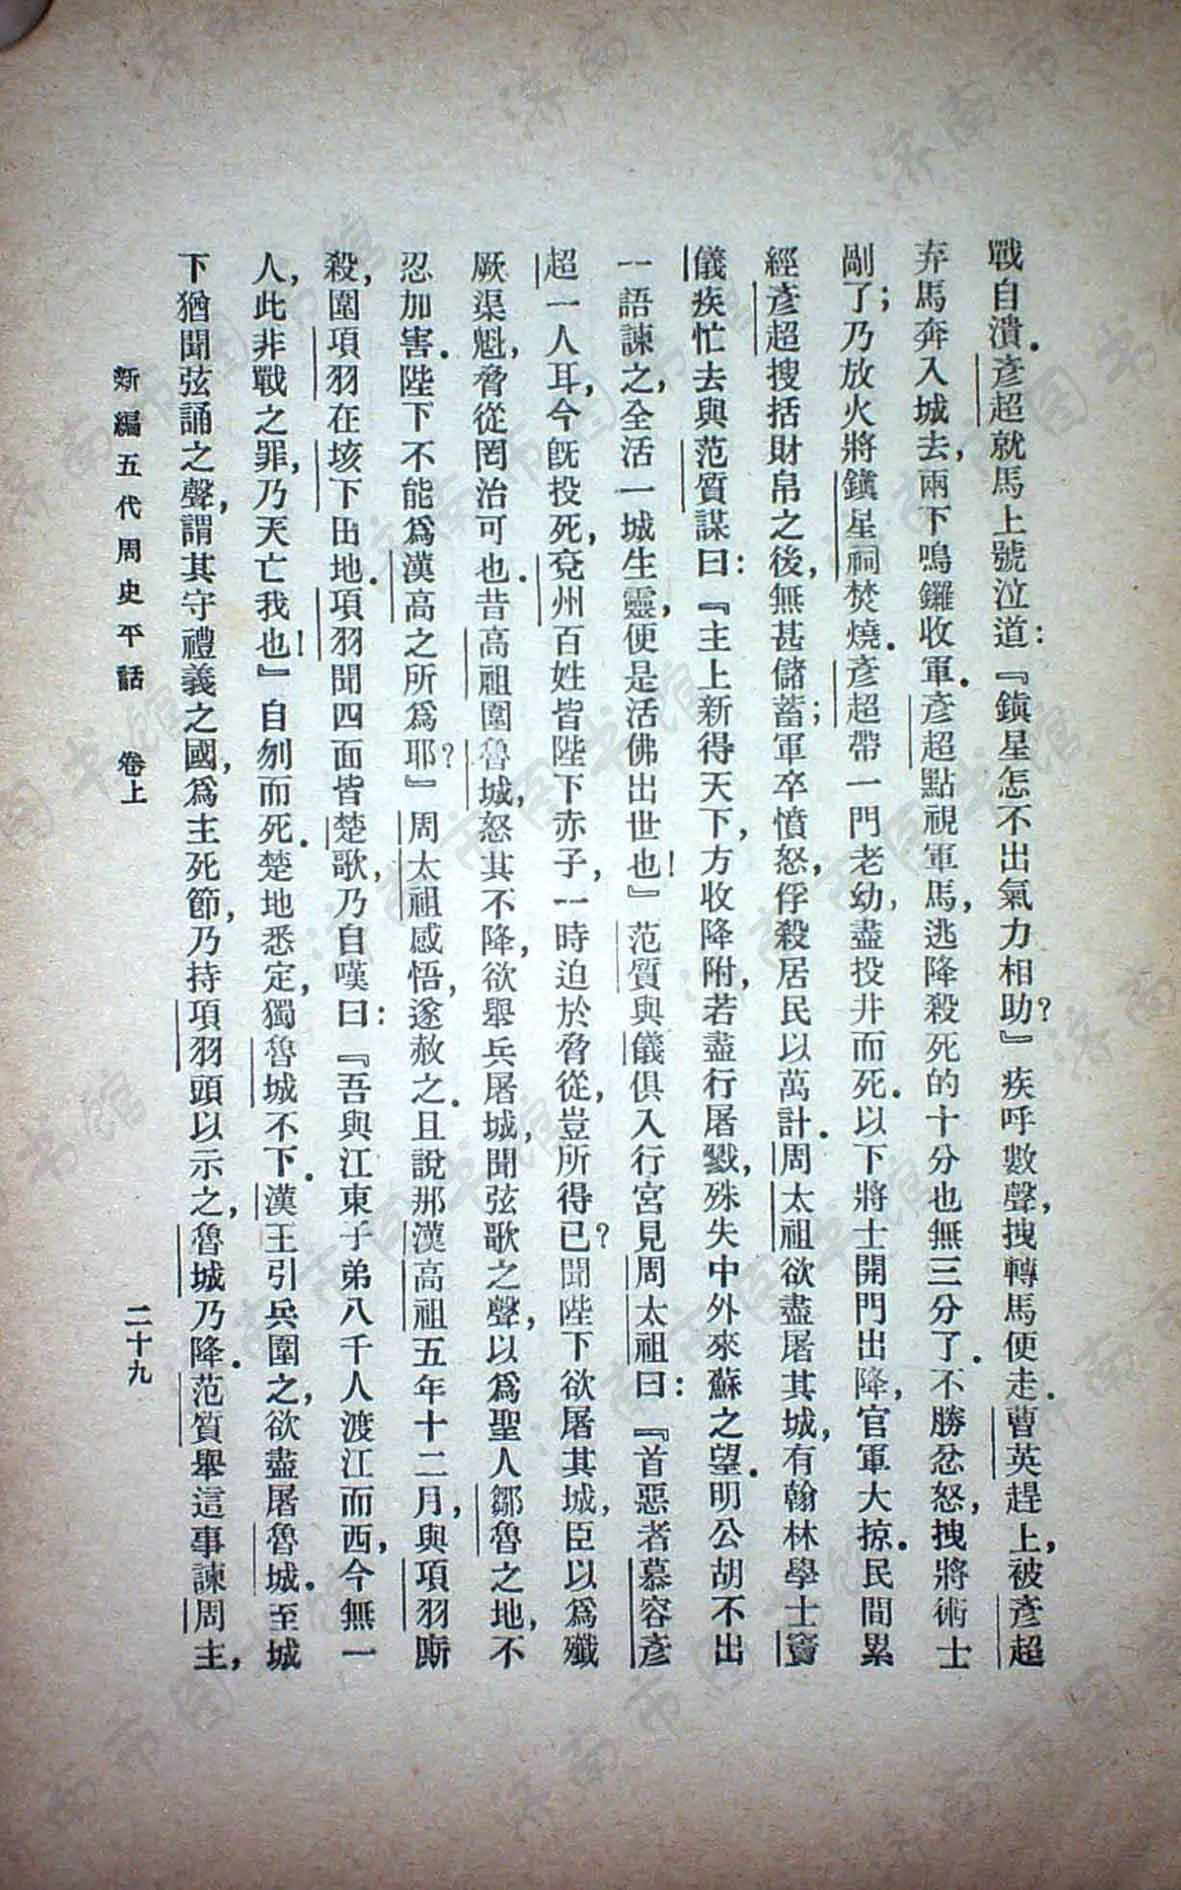 戰自潰．彥超就馬上號泣道：『鎭星怎不出氣力相助？』疾呼數聲，拽轉馬便走．曹英趕上，被彥超
弃馬奔入城去，兩下鳴鑼收軍．彥超點視軍馬，逃降殺死的十分也無三分了．不勝忿怒，拽將術士
剮了；乃放火將鎭星祠焚燒．彥超帶一門老幼，盡投井而死．以下將士開門出降，官軍大掠．民間累
經彥超搜括財帛之後，無甚儲蓄；軍卒憤怒，俘殺居民以萬計．周太祖欲盡屠其城，有翰林學士竇
儀疾忙去與范質謀曰：『主上新得天下，方收降附，若盡行屠戮，殊失中外來蘇之望．明公胡不出
一語諫之，全活一城生靈，便是活佛出世也！』范質與儀俱入行宮見周太祖曰：『首惡者慕容彥
超一人耳，今旣投死，兗州百姓皆陛下赤子，一時迫於脅從，豈所得已？聞陛下欲屠其城，臣以爲殲
厥渠魁，脅從罔治可也．昔高祖圍魯城，怒其不降，欲舉兵屠城，聞弦歌之聲，以爲聖人鄒魯之地，不
忍加害．陛下不能爲漢高之所爲耶？』周太祖感悟，遂赦之．且說那漢高祖五年十二月，與項羽廝
殺，圍項羽在垓下田地．項羽聞四面皆楚歌，乃自嘆曰：『吾與江東子弟八千人渡江而西，今無一
人，此非戰之罪，乃天亡我也！』自刎而死．楚地悉定，獨魯城不下．漢王引兵圍之，欲盡屠魯城．至城
下猶聞弦誦之聲，謂其守禮義之國，爲主死節，乃持項羽頭以示之，魯城乃降．范質舉這事諫周主，
新編五代周史平話　卷上　二十九
济南市图书馆